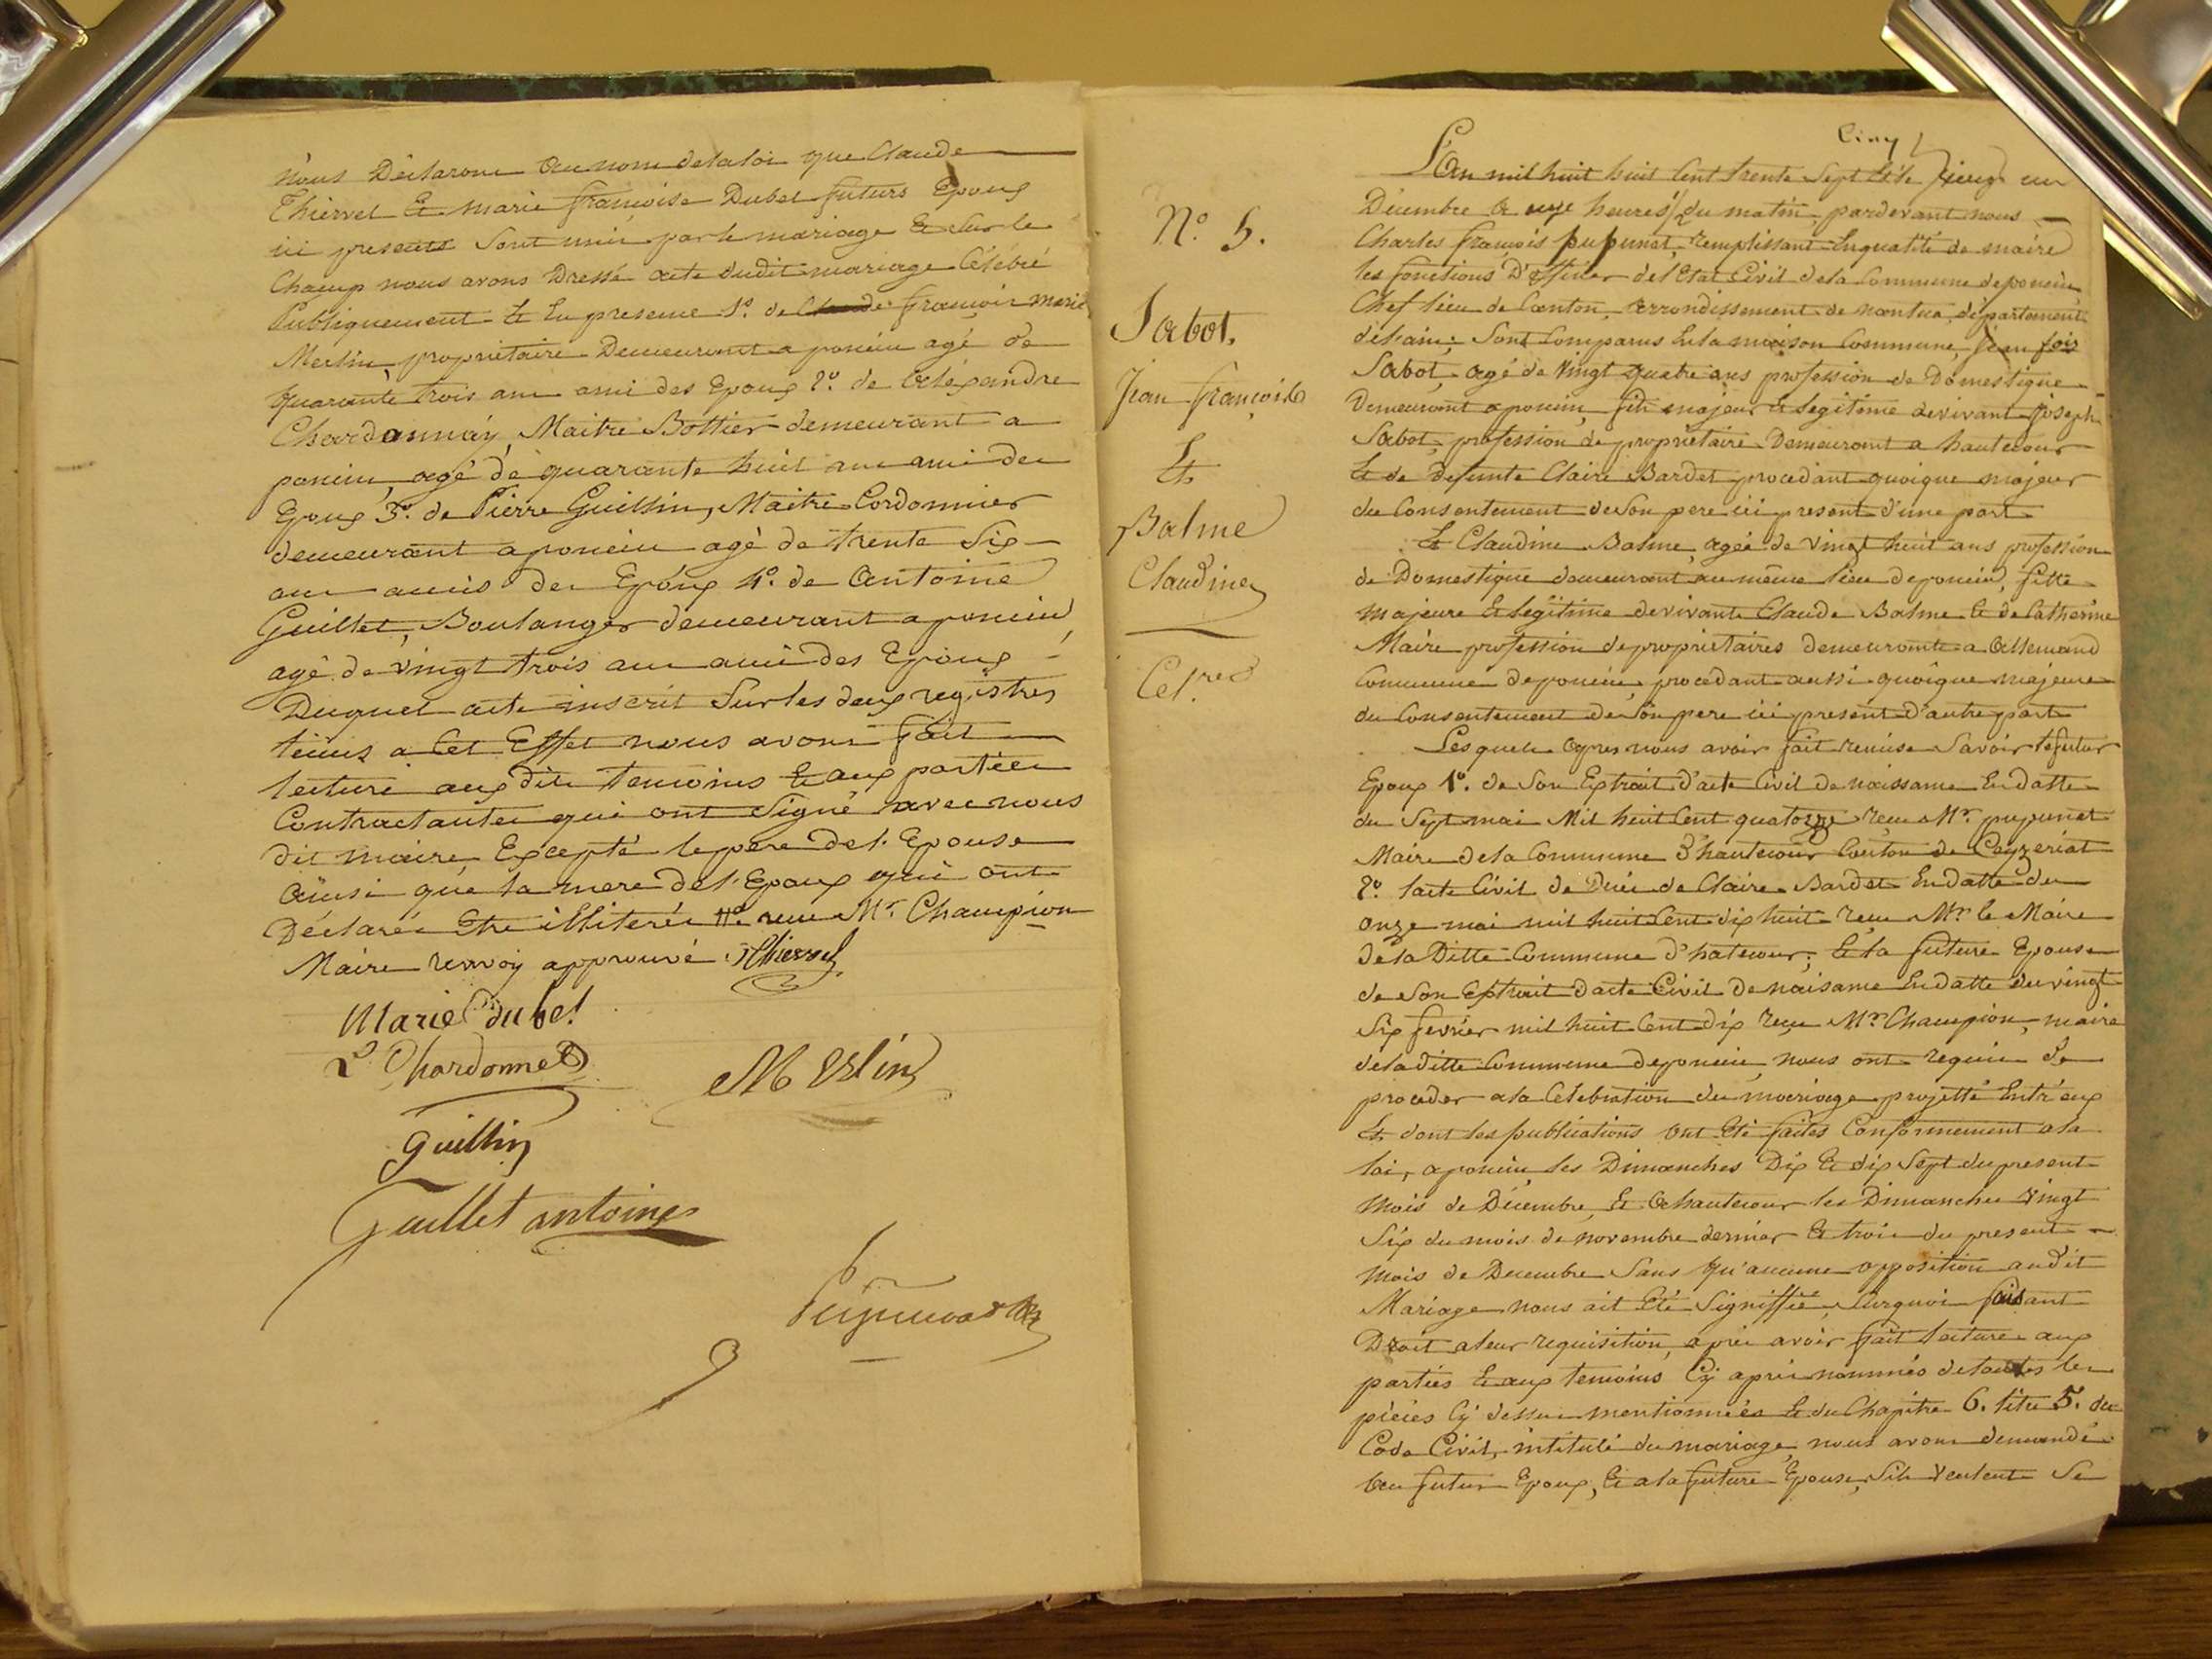 Nous Déclarons au nom de la loi que Claude
Thiervet Et marie françoise Dubet futurs Epoux
ici presents Sont unis par le mariage Et Sur le
Champ nous avons Dressé acte dudit mariage Célébré
Publiquement Et En presence 1o. de françois marie
Merlin, propriétaire Demeurant a poncin agé de
quarante trois ans ami des Epoux 2o. de Aléxandre
Chardonnay Maitre Bottier demeurant a
poncin, agé de quarante huit ans ami des
Epoux 3o. de Pierre Guillin, Maitre Cordonnier
demeurant a poncin agé de trente Six
ans amis des Epoux 4o. de Antoine
Guillet, Boulanger demeurant a poncin
agé de vingt trois ans ami des Epoux
Duquel acte inscrit Sur les deux registres
tenus a Cet Effet nous avons fait
lecture aux dits temoins Et aux parties
Contractantes qui ont Signé avec nous
dit maire Excepté le pere de l'Epouse
ainsi que la mere de l'Epoux qui ont
Déclarés Etre illiterés reçu Mr. Champion
Maire renvoy approuvé Thiervet
Marie dubet
Chardonnet
Merlin
Guillin
Guillet antoine
No. 5.
Sabot,
Jean françois
Et
Balme
Claudine
Cel.res
Cinq
L'an mil huit huit Cent trente Sept Et le
Décembre a heures du matin, pardevant nous
Charles françois pupunat, remplissant En qualité de maire
les fonctions D'officier de l'Etat Civil de la Commune de poncin
Chef lieu de Canton, arrondissement de nantua, département
de l'ain; Sont Comparus En la maison Commune, jean fois
Sabot, agé de vingt quatre ans profession de Domestique
Demeurant a poncin, fils majeur Et legitime de vivant joseph
Sabot, profession de proprietaire Demeurant a hautecour
Et de defunte Claire Bardet procedant quoique majeur
du Consentement de Son pere ici present d'une part
Et Claudine Balme, agée de vingt huit ans profession
de Domestique demeurant au même lieu de poncin, fille
majeure Et legitime de vivants Claude Balme Et de Catherine
Maire profession de propriétaires demeurants a allemand
Commune de poncin, procedant aussi quoique majeure
du Consentement de Son pere ici present d'autre part
Lesquels apres nous avoir fait remise Savoir le futur
Epoux 1o. de Son Extrait d'acte Civil de naissance En datte
du Sept mai Mil huit Cent quatorze reçu Mr. pupunat
Maire de la Commune d'hautecour Canton de Ceyzeriat
2o. l'acte Civil de Décés de Claire Bardet En datte du
onze mai mil huit Cent dix huit reçu Mr. le Maire
de la Ditte Commune d'hatecour; Et la future Epouse
de Son Extrait d'acte Civil de naisance En datte du vingt
Six fevrier mil huit Cent dix reçu Mr. Champion, maire
de la ditte Commune de poncin, nous ont requis de
proceder a la Celebration du mariage projetté Entr'eux
Et dont les publications ont Eté faites Conformement a la
loi, a poncin les Dimanches Dix Et dix Sept du present
Mois de Décembre, Et a hautecour les Dimanches vingt
Six du mois de novembre dernier Et trois du present
mois de Decembre Sans qu'aucune opposition audit
Mariage nous ait Eté Signiffiée, Surquoi faisant
Droit a leur requisition, aprés avoir fait lecture aux
parties Et aux temoins Cy aprés nommés de toutes les
piéces Cy dessus mentionnées Et du Chapitre 6. titre 5. du
Code Civil, intitulé du mariage, nous avons demandé
au futur Epoux, Et a la future Epouse, S'ils veulent Se